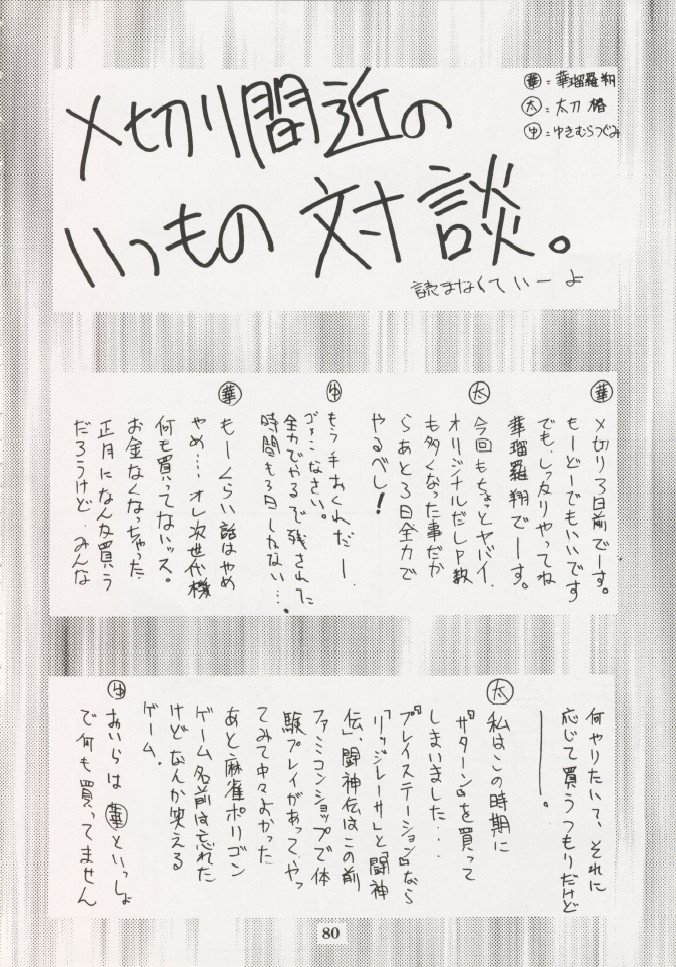 〆切り間近の
いつもの対談。
読まなくていーよ
華=華瑠羅翔
太=太刀椿
ゆ=ゆきむらつぐみ
華 〆切り3日前でーす。
もーどーでもいいです
でも、しっかりやってね
華瑠羅翔でーす。
太 今回もちょっとヤバイ、
オリジナルだしP数
も多くなった事だか
らあと3日全力で
やるべし!
ゆ もう手おくれだー、
ゴメンなさい。
全力でやるで残された
時間も3日しかない…。
華 もーくらい話はやめ
やめ…オレ次世代機
何も買ってないッス。
お金なくなっちゃった
正月になんか買う
だろうけど、みんな
何やりたいて、それに
応じて買うつもりだけど
――。
太 私はこの時期に
『サターン』を買って
しまいました…
『プレイステーション』なら
「リッジレーサー」と「闘神
伝」、闘神伝はこの前
ファミコンショップで体
験プレイがあって、やっ
てみて中々よかった
あと麻雀ポリゴン
ゲーム名前は忘れた
けどなんか笑える
ゲーム。
ゆ おいらは華といっしょ
で何も買ってません
80